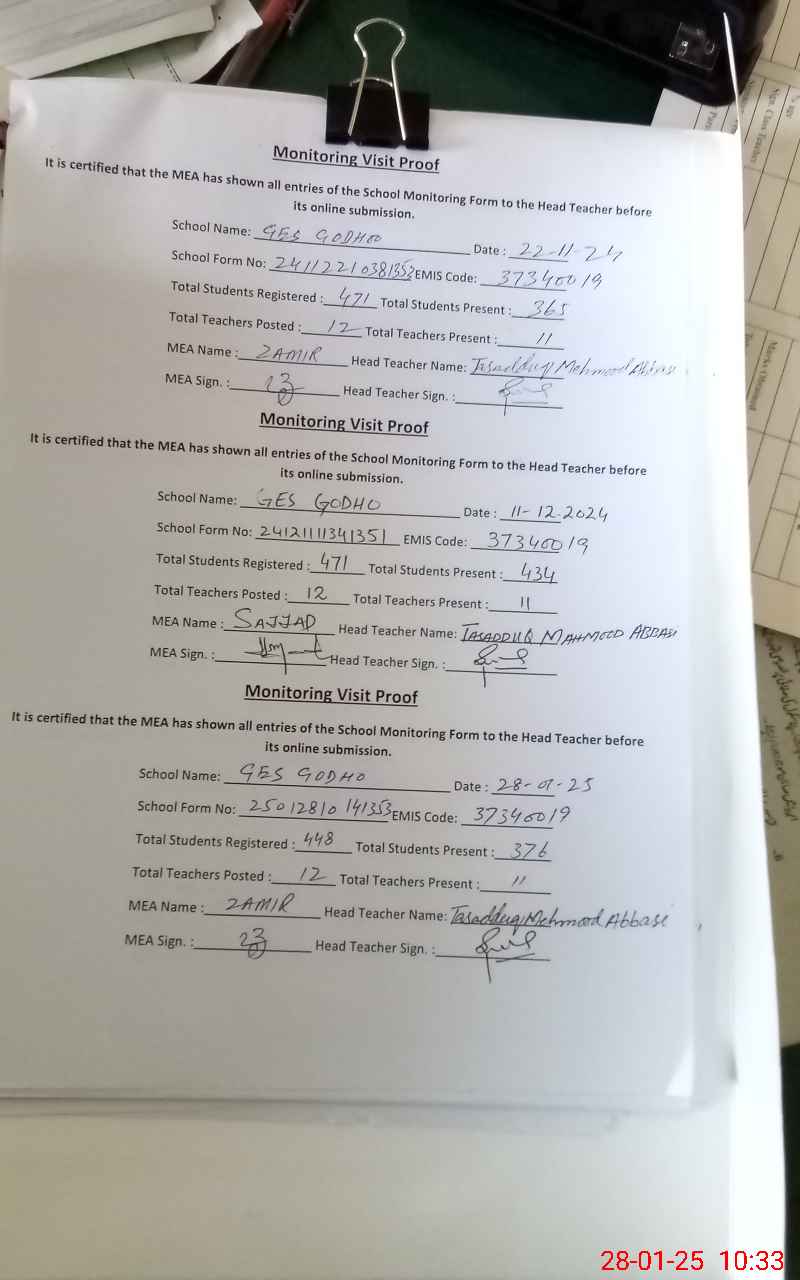 Monitoring Visit Proof
It is certified that the MEA has shown all entries of the School Monitoring Form to the Head Teacher before
its online submission.
School Name: GES GODHOO Date : 22-11-24
School Form No: 24112210381353 EMIS Code: 37340019
Total Students Registered : 471 Total Students Present : 365
Total Teachers Posted : 12 Total Teachers Present : 11
MEA Name : ZAMIR Head Teacher Name: Tasadduq Mehmood Abbasi
MEA Sign. : Head Teacher Sign. :
Monitoring Visit Proof
It is certified that the MEA has shown all entries of the School Monitoring Form to the Head Teacher before
its online submission.
School Name: GES GODHO Date : 11-12-2024
School Form No: 24121111341351 EMIS Code: 37340019
Total Students Registered : 471 Total Students Present : 434
Total Teachers Posted : 12 Total Teachers Present : 11
MEA Name : SAJJAD Head Teacher Name: TASADDUQ MAHMOOD ABBASI
MEA Sign. : Head Teacher Sign. :
Monitoring Visit Proof
It is certified that the MEA has shown all entries of the School Monitoring Form to the Head Teacher before
its online submission.
School Name: GES GODHO Date : 28-01-25
School Form No: 25012810141353 EMIS Code: 37340019
Total Students Registered : 448 Total Students Present : 376
Total Teachers Posted : 12 Total Teachers Present : 11
MEA Name : ZAMIR Head Teacher Name: Tasadduq Mehmood Abbasi
MEA Sign. : Head Teacher Sign. :
Sign. Class Teacher
Marks Obtained
28-01-25 10:33